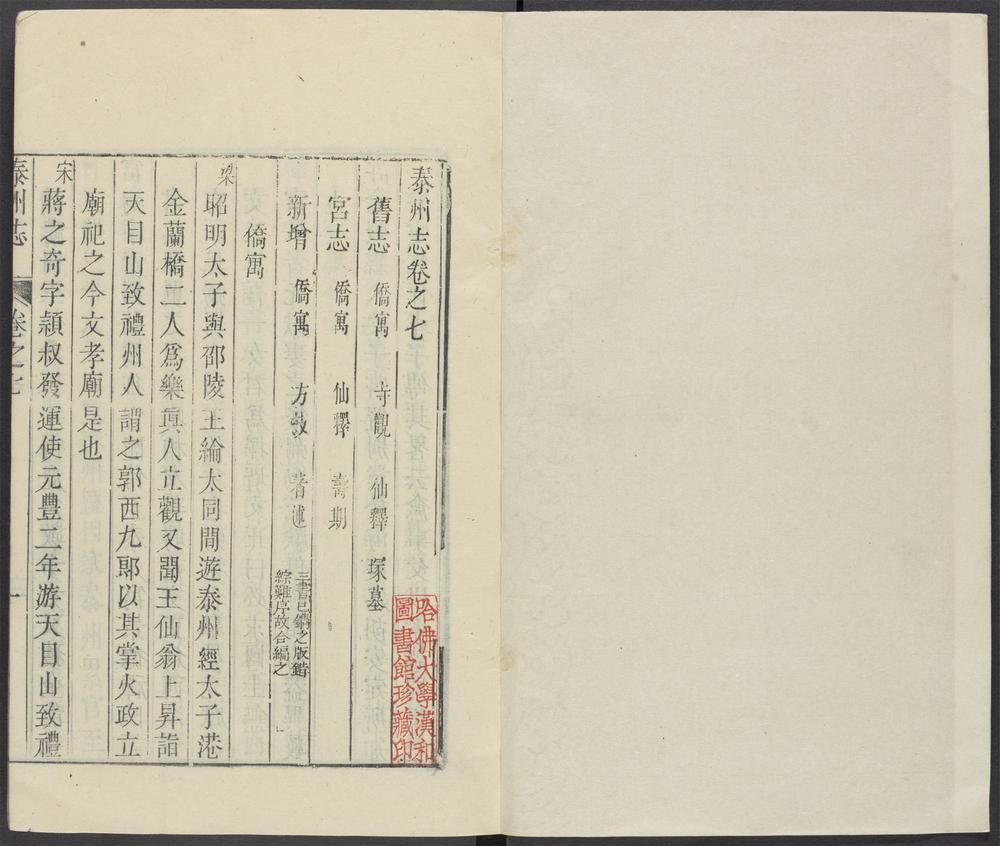 泰州志卷之七
舊志 僑寓 寺觀 仙釋 塚墓
宮志 僑寓 仙釋 壽期
新增 僑寓 方技 著述 三書已鐫之版錯綜難序故合編之
僑寓
梁昭明太子與邵陵王綸太同間遊泰州經太子港
金蘭橋二人爲樂眞人立觀又聞王仙翁上昇詣
天目山致禮州人謂之郭西九郎以其掌火政立
廟祀之今文孝廟是也
宋蔣之奇字潁叔發運使元豐二年游天目山致禮
泰州志 卷之七 一
哈佛大學漢和
圖書館珍藏印